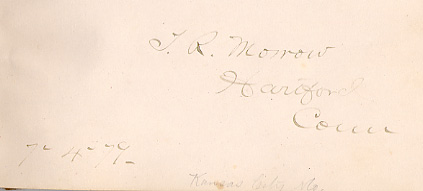 T. R. Morrow
Hartford
Conn
7- 4- 79-
Kansas City Mo.